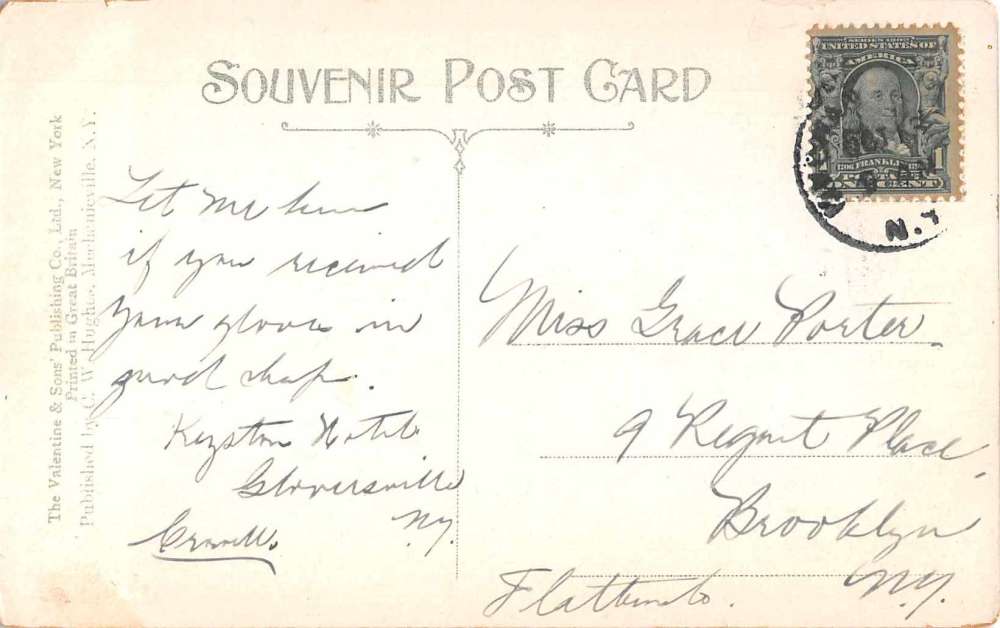 SOUVENIR POST CARD
The Valentine & Sons' Publishing Co., Ltd., New York
Printed in Great Britain
Published by C. W. Hughes, Mechanicville, N.Y.
SERIES 1902
UNITED STATES OF
AMERICA
FRANKLIN
1
ONE CENT
N.Y.
Let me know
if you received
your gloves in
good shape.
Keyston Hotel
Gloversville
N.Y.
Miss Grace Porter
9 Regent Place
Brooklyn
N.Y.
Flatbush.